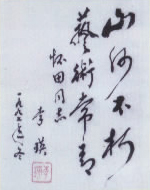 山河不朽
藝術常青
怀田同志
李瑛
一九九二年冬